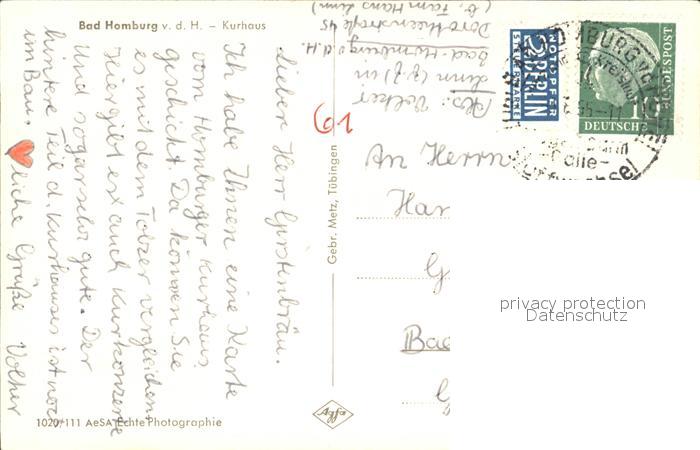 Bad Homburg v. d. H. – Kurhaus
Lieber Herr Gerstenbräu.
Ich habe Ihnen eine Karte
vom Homburger Kurhaus
geschickt. Da können Sie
es mit dem Tölzer vergleichen.
Hier gibt es auch Kurkonzerte
und sogar sehr gute. Der
hintere Teil d. Kurhauses ist noch
im Bau. ❤liche Grüße Volker
Abs: Volker
Linn (z.Z) in
Bad-Homburg v.d.H.
Dorotheenstraße 45
(b. Fam Hans Linn)
61
An Herrn
Har
G
Bad
G
NOTOPFER
2 BERLIN
STEUERMARKE
DEUTSCHE BUNDESPOST
10
Gebr. Metz, Tübingen
Agfa
1020/111 AeSA Echte Photographie
privacy protection
Datenschutz